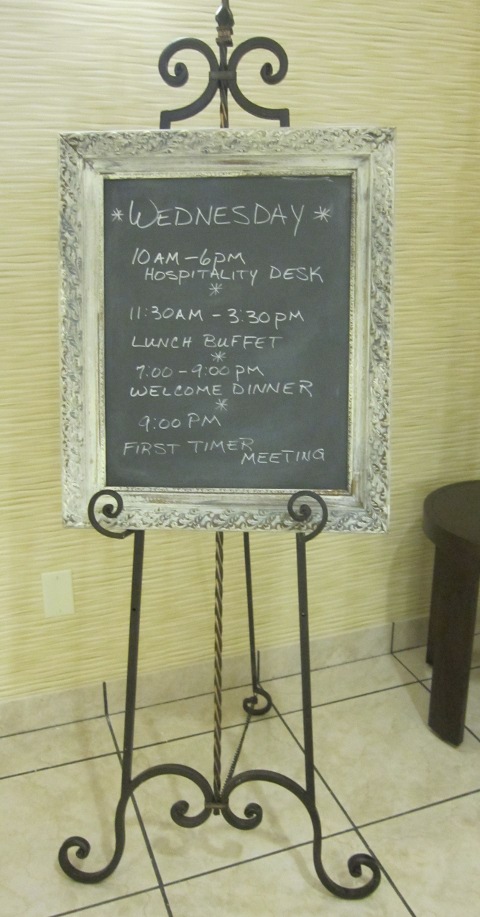 *WEDNESDAY*
10AM-6PM
HOSPITALITY DESK
*
11:30AM - 3:30PM
LUNCH BUFFET
*
7:00-9:00 PM
WELCOME DINNER
*
9:00 PM
FIRST TIMER
MEETING